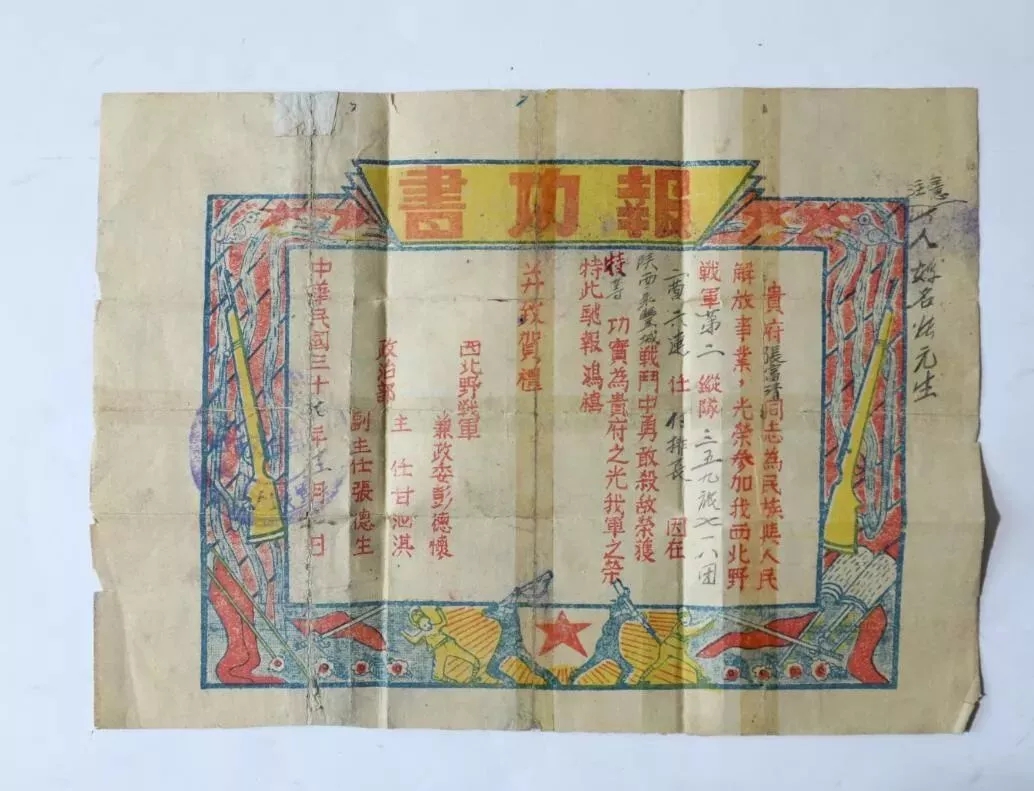 報功書
貴府張富清同志為民族與人民
解放事業，光榮參加我西北野
戰軍第二縱隊三五九旅七一八团
二营六連任付排長因在
陕西永豐城戰鬥中勇敢殺敵榮獲
特等功實為貴府之光我軍之榮
特此馳報鴻禧
并錄賀禮
西北野戰軍
兼政委彭德懷
政治部
主任甘泗淇
副主任張德生
中華民國三十七年十二月 日
注意
人姓名
元生